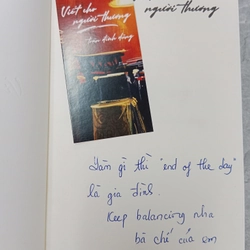 người thương
Viết cho
người thương
trần đình dũng
Làm gì thì "end of the day"
là gia đình.
Keep balancing nha
bà chế của em